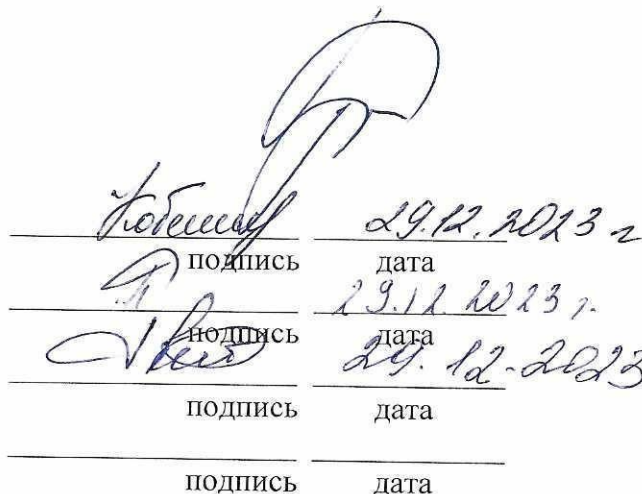 29.12.2023 г
подпись дата
29.12.2023 г.
подпись дата
29.12-2023
подпись дата
подпись дата